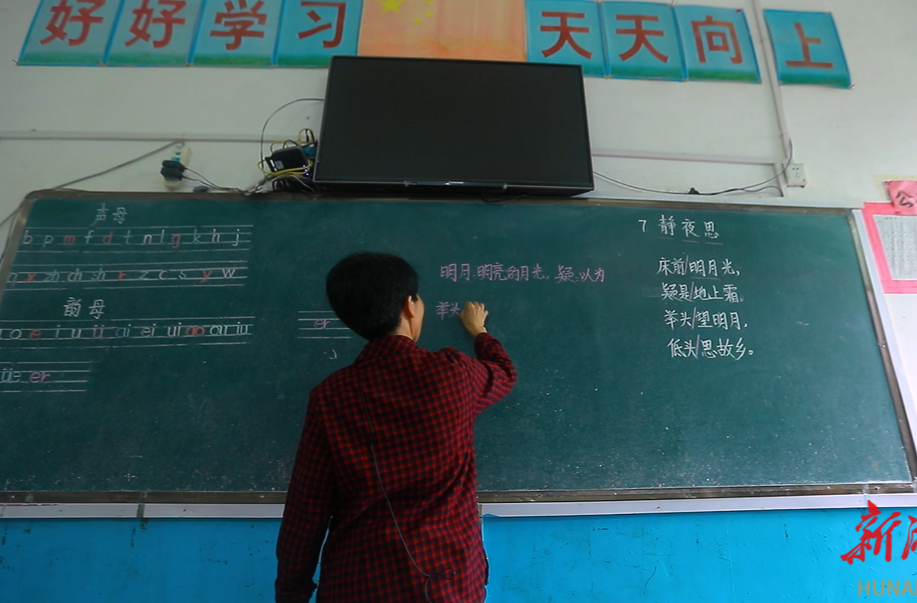 好好学习 天天向上
声母
b p m f d t n l g k h j
q x zh ch sh r z c s y w
韵母
er
明月:明亮的月光。疑:以为
举头
7 静夜思
床前/明月光,
疑是/地上霜。
举头/望明月,
低头/思故乡。
üe er
新
HUNA